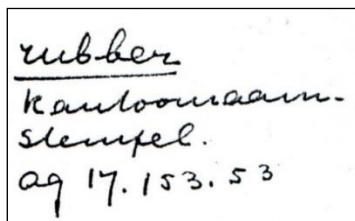 rubber
kantoornaam-
stempel.
ag 17.153.53